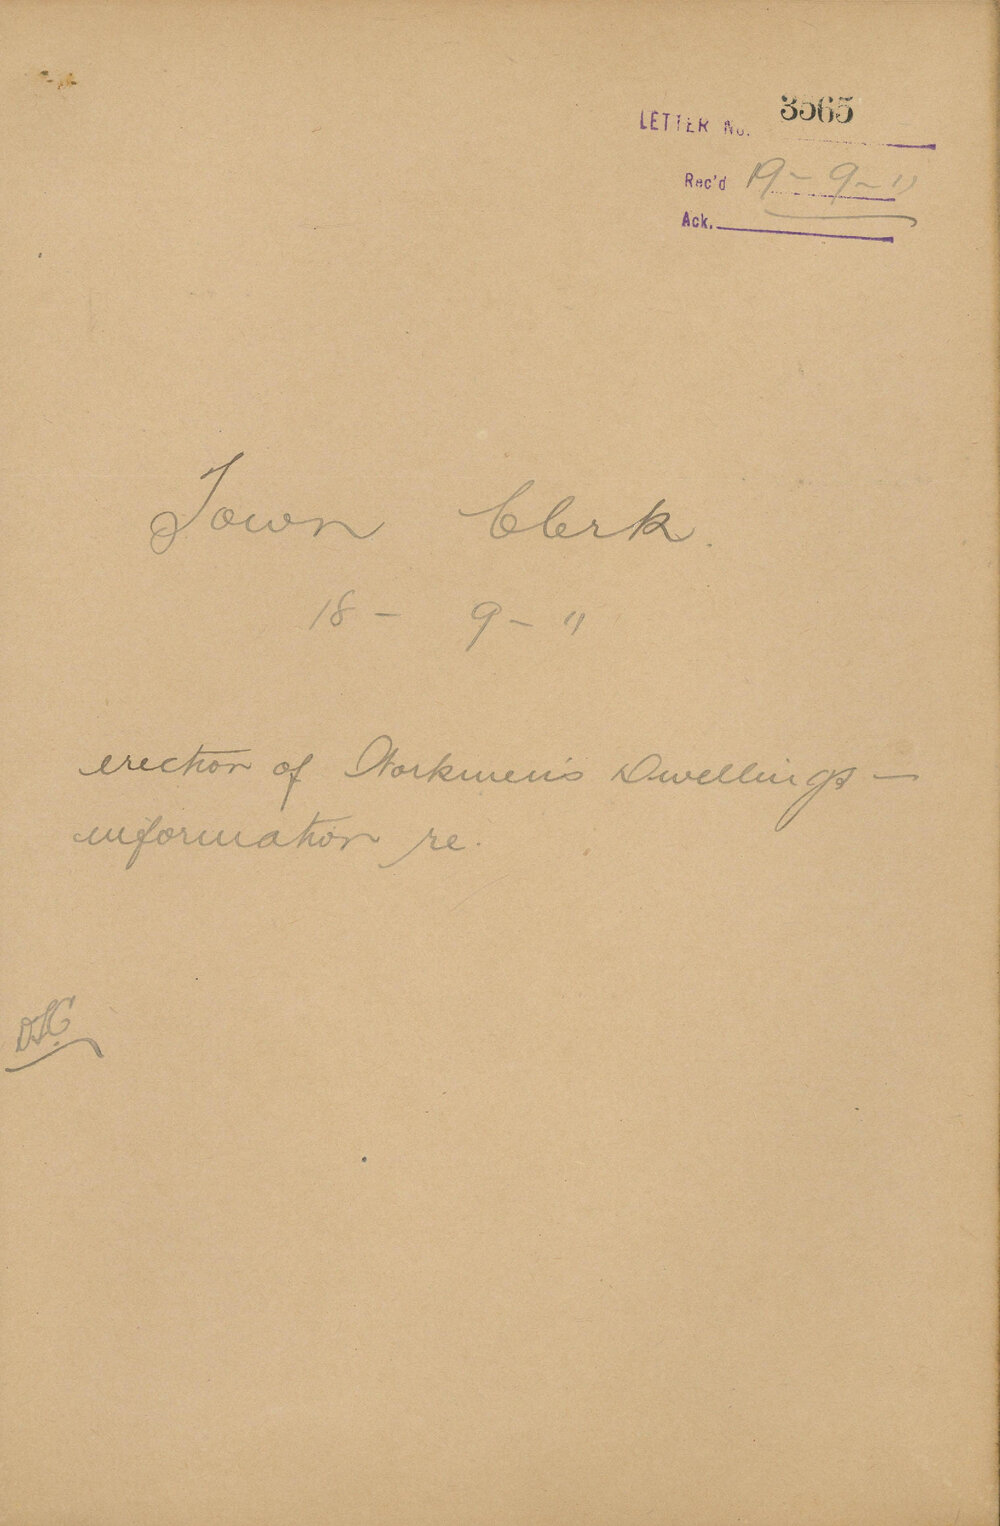 LETTER No. 3565
Rec'd 19-9-11
Ack.
Town Clerk.
18-9-11
erection of Workmen's Dwellings —
information re.